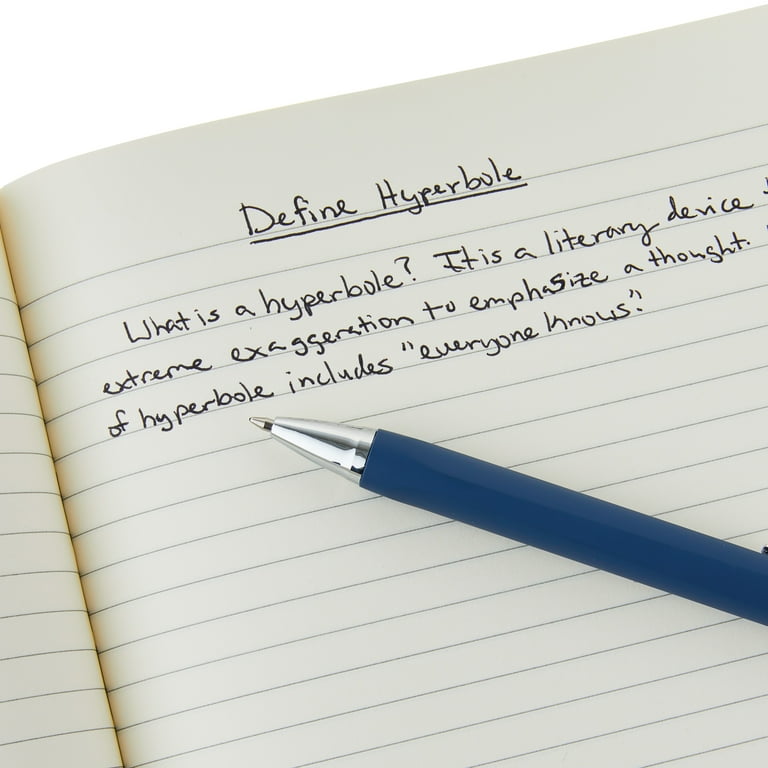 Define Hyperbole
What is a hyperbole? It is a literary device
extreme exaggeration to emphasize a thought.
of hyperbole includes "everyone knows".